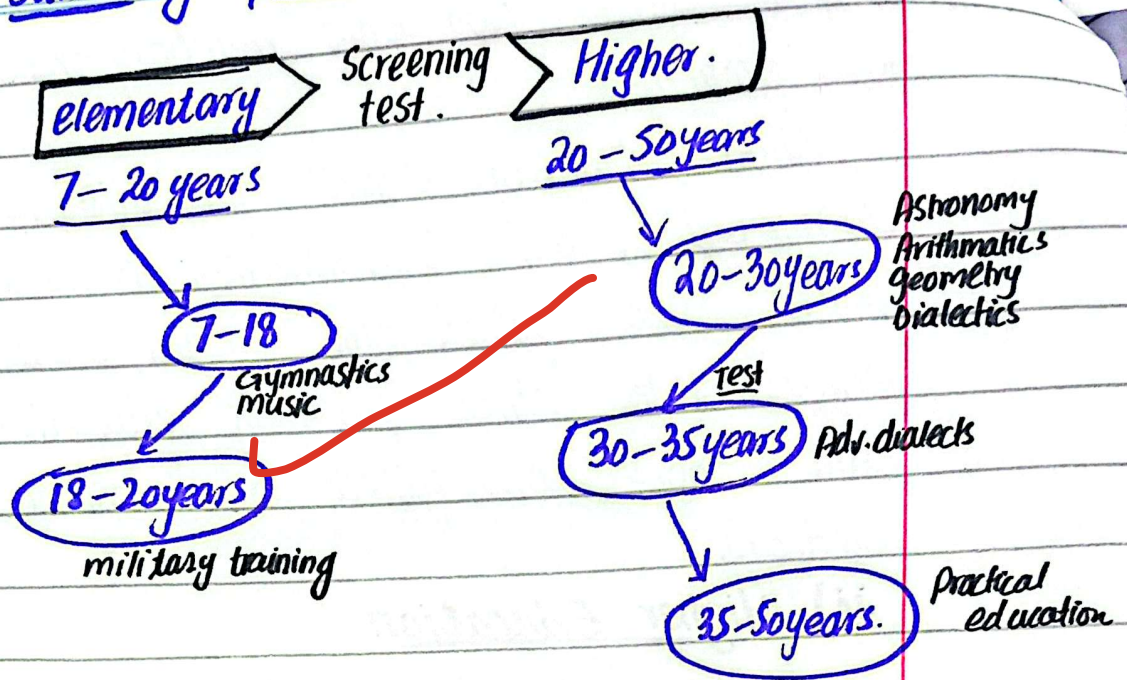 elementary
Screening
test.
Higher.
7– 20 years
20 – 50 years
7–18
Gymnastics
music
18–20 years
military training
20–30 years
Astronomy
Arithmatics
geometry
Dialectics
Test
30–35 years
Adv. dialects
35–50 years.
Practical
education